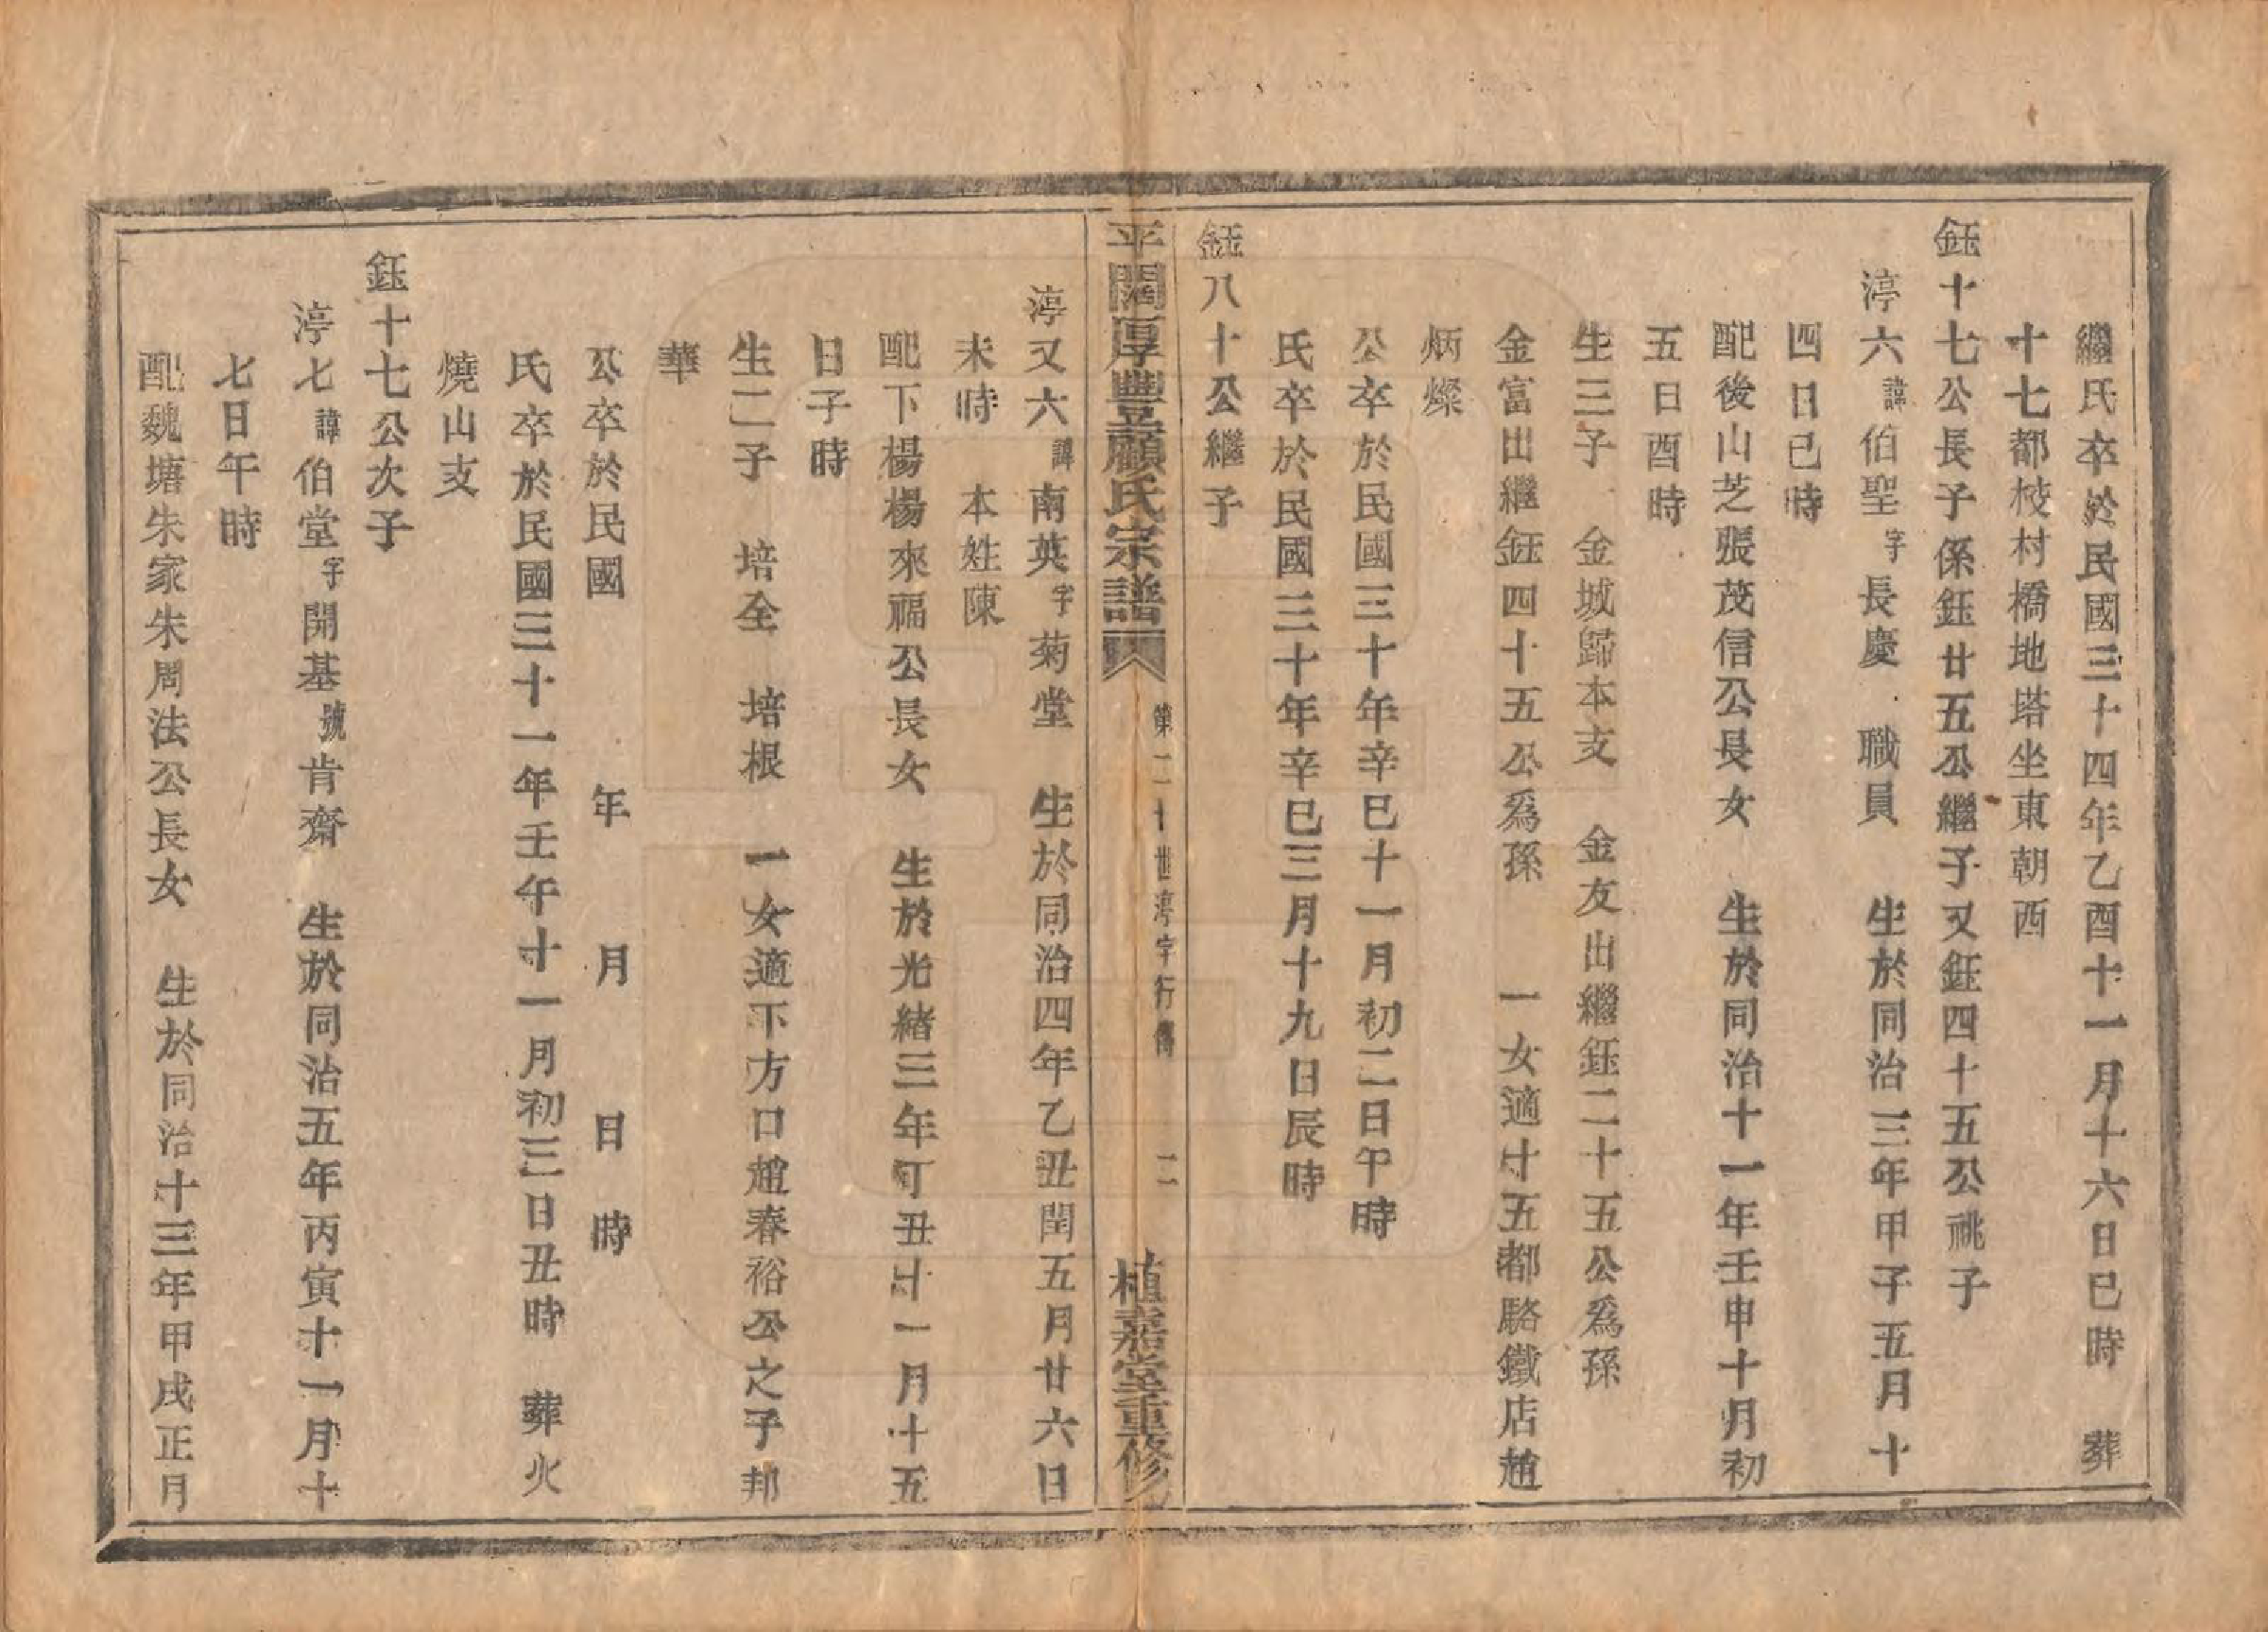 繼氏卒於民國三十四年乙酉十一月十六日巳時　葬
十七都枝村橋地塔坐東朝西
鈺十七公長子係鈺廿五公繼子又鈺四十五公祧子
淳六諱伯聖字長慶　職員　生於同治三年甲子五月十
四日巳時
配後山芝張茂信公長女　生於同治十一年壬申十月初
五日酉時
生三子　金城歸本支　金友出繼鈺二十五公爲孫
金富出繼鈺四十五公爲孫　一女適十五都駱鐵店趙
炳燦
公卒於民國三十年辛巳十一月初二日午時
氏卒於民國三十年辛巳三月十九日辰時
鈺八十公繼子
平闊厚豐顧氏宗譜　第二十世淳字行傳　二　植嘉堂重修
淳又六諱南英字菊堂　生於同治四年乙丑閏五月廿六日
未時　本姓陳
配下楊楊來福公長女　生於光緒三年丁丑十一月十五
日子時
生二子　培全　培根　一女適下方口趙春裕公之子邦
華
公卒於民國　年　月　日　時
氏卒於民國三十一年壬午十一月初三日丑時　葬火
燒山支
鈺十七公次子
淳七諱伯堂字開基號肯齋　生於同治五年丙寅十一月十
七日午時
配魏塘朱家朱周法公長女　生於同治十三年甲戌正月